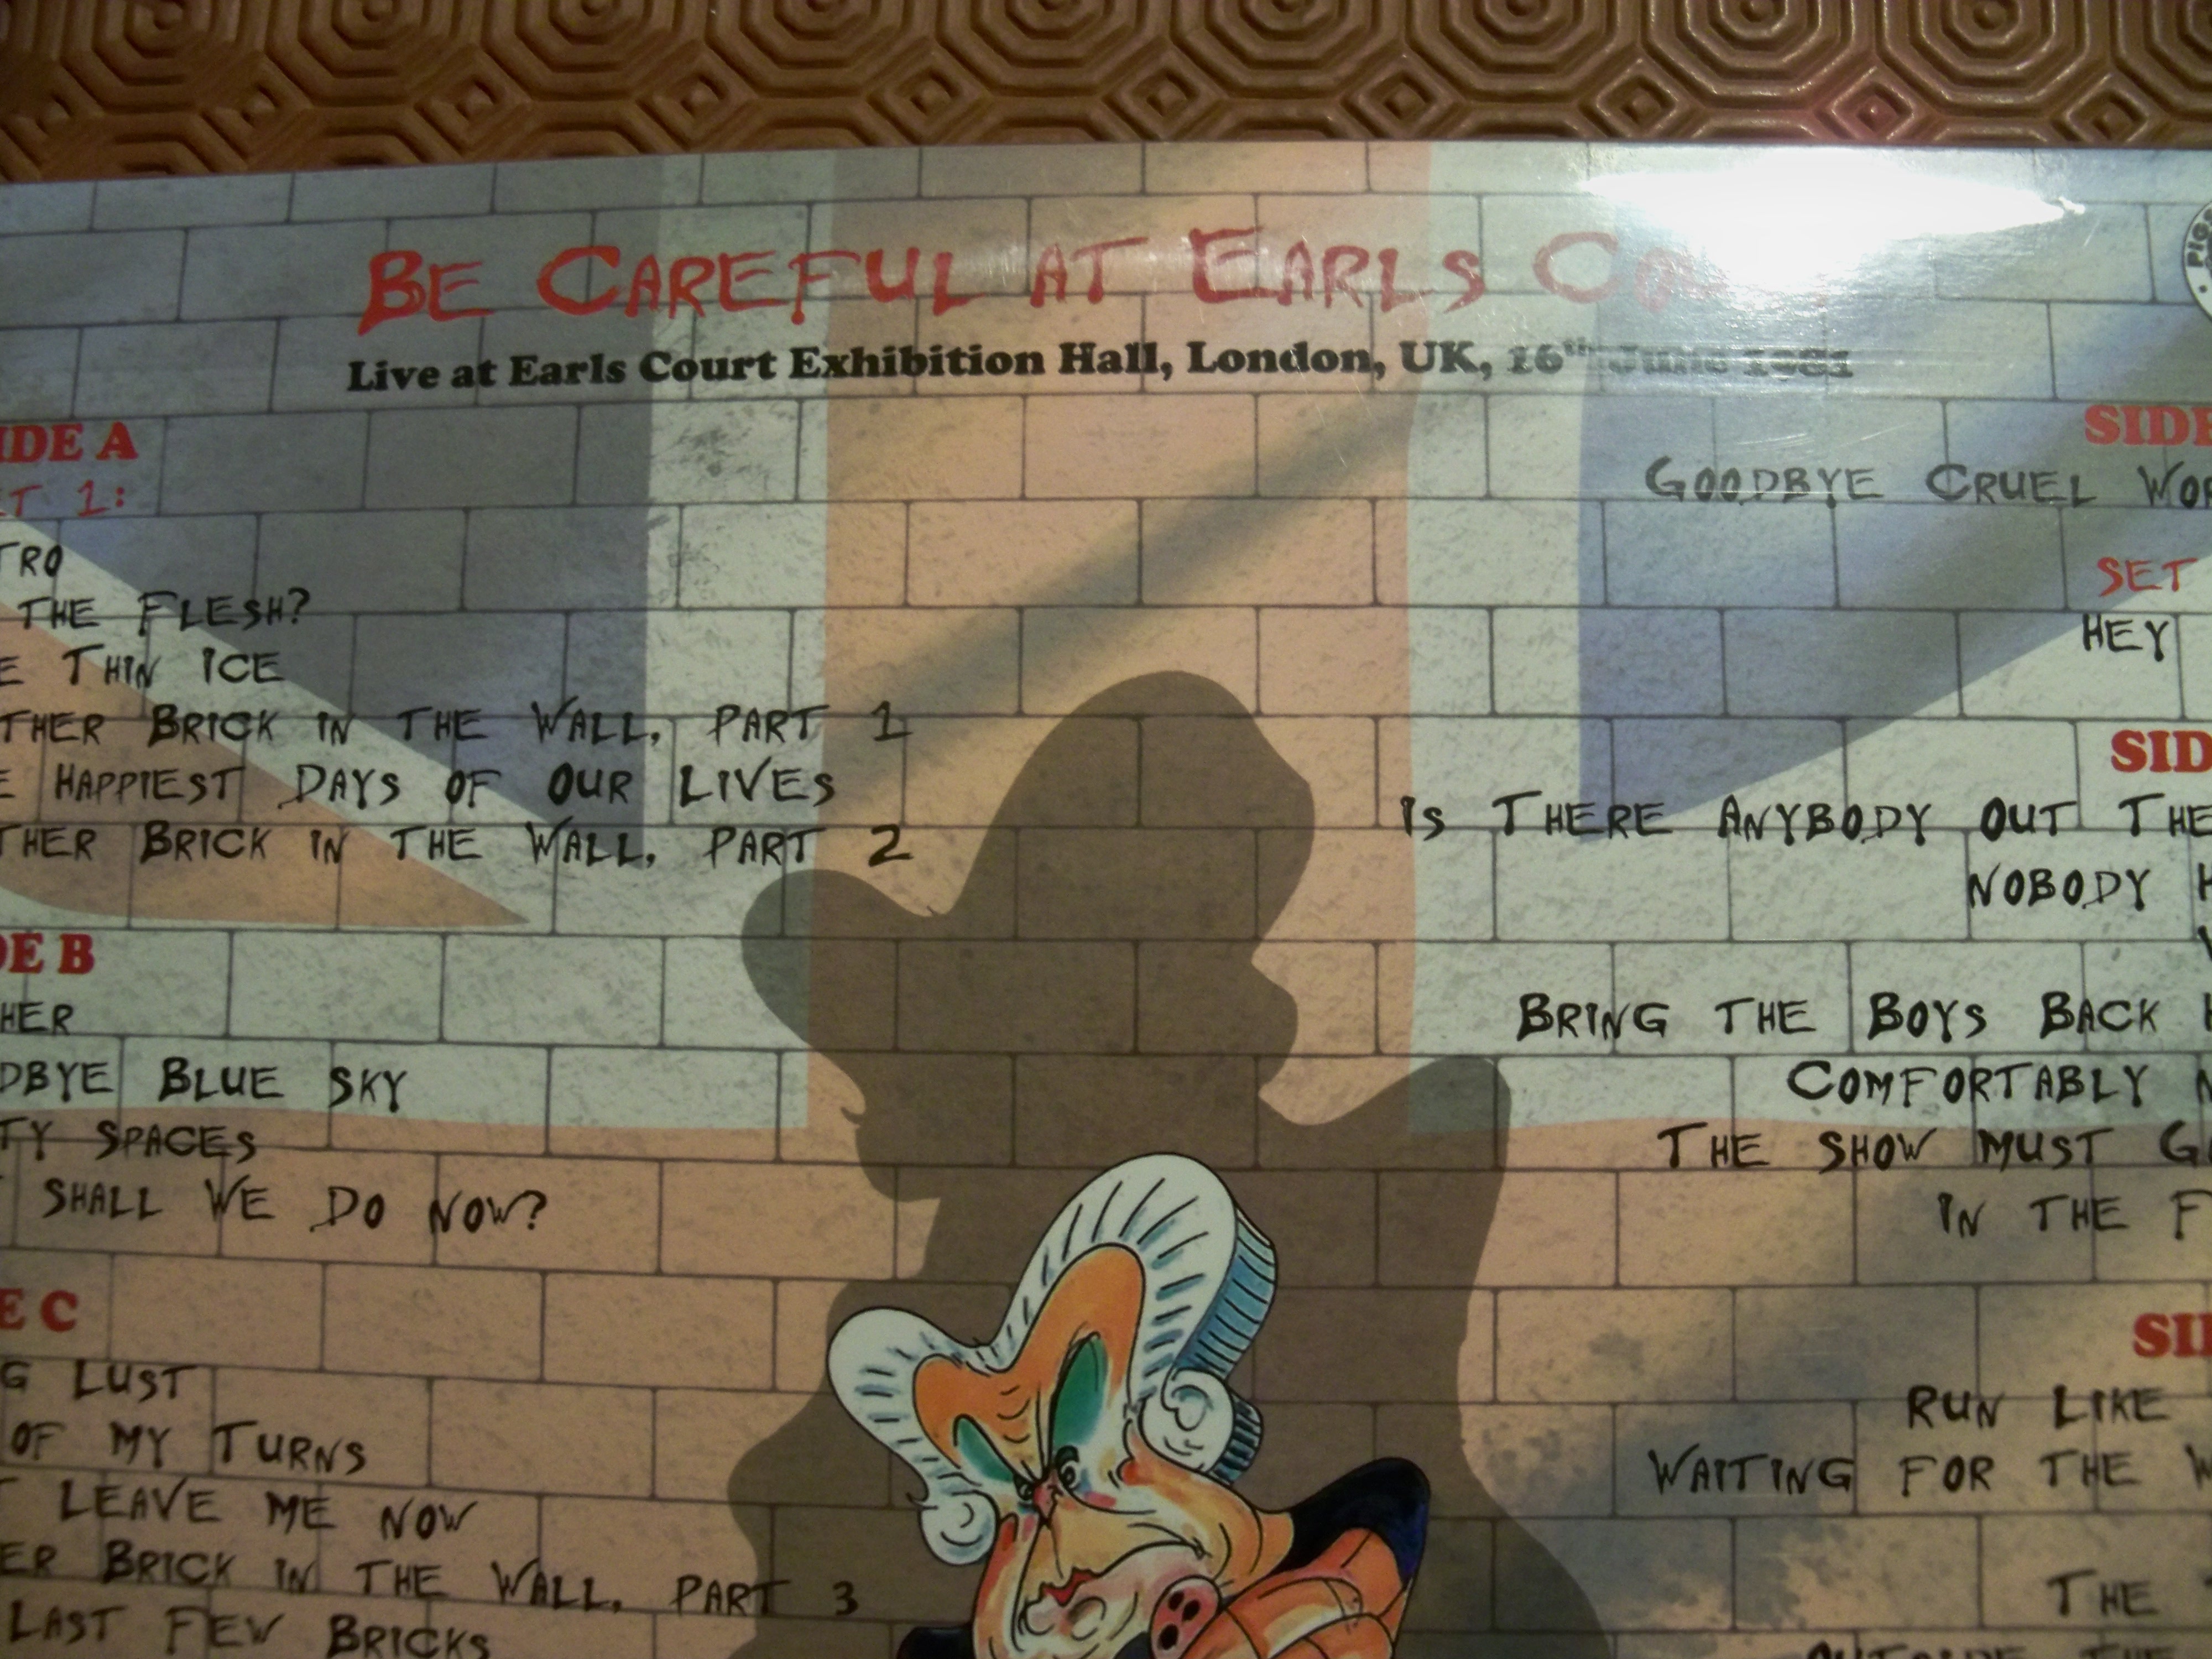 BE CAREFUL AT EARLS
Live at Earls Court Exhibition Hall, London, UK, 16th June 1981
SIDE A
SET 1:
TRO
THE FLESH?
E THIN ICE
THER BRICK IN THE WALL, PART 1
E HAPPIEST DAYS OF OUR LIVES
THER BRICK IN THE WALL, PART 2
DE B
HER
DBYE BLUE SKY
TY SPACES
SHALL WE DO NOW?
E C
G LUST
OF MY TURNS
T LEAVE ME NOW
ER BRICK IN THE WALL, PART 3
LAST FEW BRICKS
PIG
SIDE
GOODBYE CRUEL WOR
SET
HEY
SID
IS THERE ANYBODY OUT THE
NOBODY H
BRING THE BOYS BACK H
COMFORTABLY N
THE SHOW MUST G
IN THE F
SI
RUN LIKE
WAITING FOR THE W
THE
OUTSIDE THE